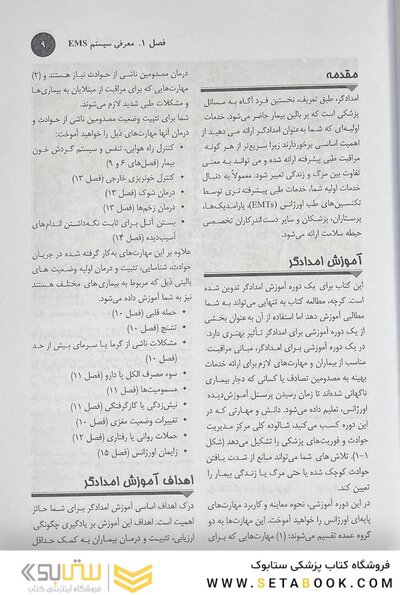 فصل ۱. معرفی سیستم EMS
۹
مقدمه
امدادگر، طبق تعریف، نخستین فرد آگاه به مسائل
پزشکی است که بر بالین بیمار حاضر می‌شود. خدمات
اولیه‌ای که شما به‌عنوان امدادگر ارائه می دهید از
اهمیت اساسی برخوردارند زیرا سریع‌تر از هر گونه
مراقبت طبی پیشرفته ارائه شده و می توانند به معنی
تفاوت بین مرگ و زندگی تعبیر شود. معمولاً به دنبال
خدمات اولیه شما، خدمات طبی پیشرفته تری توسط
تکنسین‌های طب اورژانس (EMTs)، پارامدیک‌ها،
پرستاران، پزشکان و سایر دست‌اندرکاران تخصصی
حیطه سلامت ارائه می‌شود.
آموزش امدادگر
این کتاب برای یک دوره آموزش امدادگر تدوین شده
است. گرچه، مطالعه کتاب به تنهایی می‌تواند به شما
مطالبی آموزش دهد اما استفاده از آن به‌عنوان بخشی
از یک دوره آموزشی برای امدادگر تأثیر بهتری دارد.
در یک دوره آموزشی برای امدادگر، مبانی مراقبت
مناسب از بیماران و مهارت‌های لازم برای ارائه خدمات
بهینه به مصدومین تصادف یا کسانی که دچار بیماری
ناگهانی شده‌اند تا زمان رسیدن پرسنل آموزش‌دیده
اورژانس، تعلیم داده می‌شود. دانش و مهارتی که در
این دوره کسب می‌کنید، شالوده کلی مرکز مدیریت
حوادث و فوریت‌های پزشکی را تشکیل می‌دهد (شکل
۱-۱). تلاش های شما می‌تواند مانع از شدت یافتن
حوادث کوچک شده یا حتی مرگ یا زندگی بیمار را
تعیین کند.
در این دوره آموزشی، نحوه معاینه و کاربرد مهارت‌های
پایه‌ای اورژانس را خواهید آموخت. این مهارت‌ها به دو
گروه عمده تقسیم می‌شوند: (۱) مهارت‌هایی که برای
درمان مصدومین ناشی از حوادث نیاز هستند و (۲)
مهارت‌هایی که برای مراقبت از مبتلایان به بیماری‌ها
و مشکلات طبی شدید لازم می‌شوند.
شما برای تثبیت وضعیت مصدومین ناشی از حوادث و
درمان آنها مهارت‌های ذیل را خواهید آموخت:
• کنترل راه هوایی، تنفس و سیستم گردش خون
بیمار (فصل‌های ۶ و ۹)
• کنترل خونریزی خارجی (فصل ۱۳)
• درمان شوک (فصل ۱۳)
• درمان زخم‌ها (فصل ۱۳)
• بستن آتل برای ثابت نگه‌داشتن اندام‌های
آسیب‌دیده (فصل ۱۴)
علاوه بر این مهارت‌های به‌کار گرفته شده در جریان
حوادث، شناسایی، تثبیت و درمان اولیه وضعیت های
بالینی ذیل که مربوط به بیماری‌های مختلف هستند
نیز به شما آموزش داده می‌شود.
• حمله قلبی (فصل ۱۰)
• تشنج (فصل ۱۰)
• مشکلات ناشی از گرما یا سرمای بیش از حد
(فصل ۱۰)
• سوء مصرف الکل یا دارو (فصل ۱۱)
• مسمومیت‌ها (فصل ۱۱)
• نیش‌زدگی یا گازگرفتگی (فصل ۱۱)
• تغییرات وضعیت مغزی (فصل ۱۰)
• حملات روانی یا رفتاری (فصل ۱۲)
• زایمان اورژانس (فصل ۱۵)
اهداف آموزش امدادگر
درک اهداف اساسی آموزش امدادگر برای شما حائز
اهمیت است. اهداف این آموزش بر یادگیری چگونگی
ارزیابی، تثبیت و درمان بیماران به کمک حداقل
ستابوک
فروشگاه اینترنتی کتاب
فروشگاه کتاب پزشکی ستابوک
WWW.SETABOOK.COM